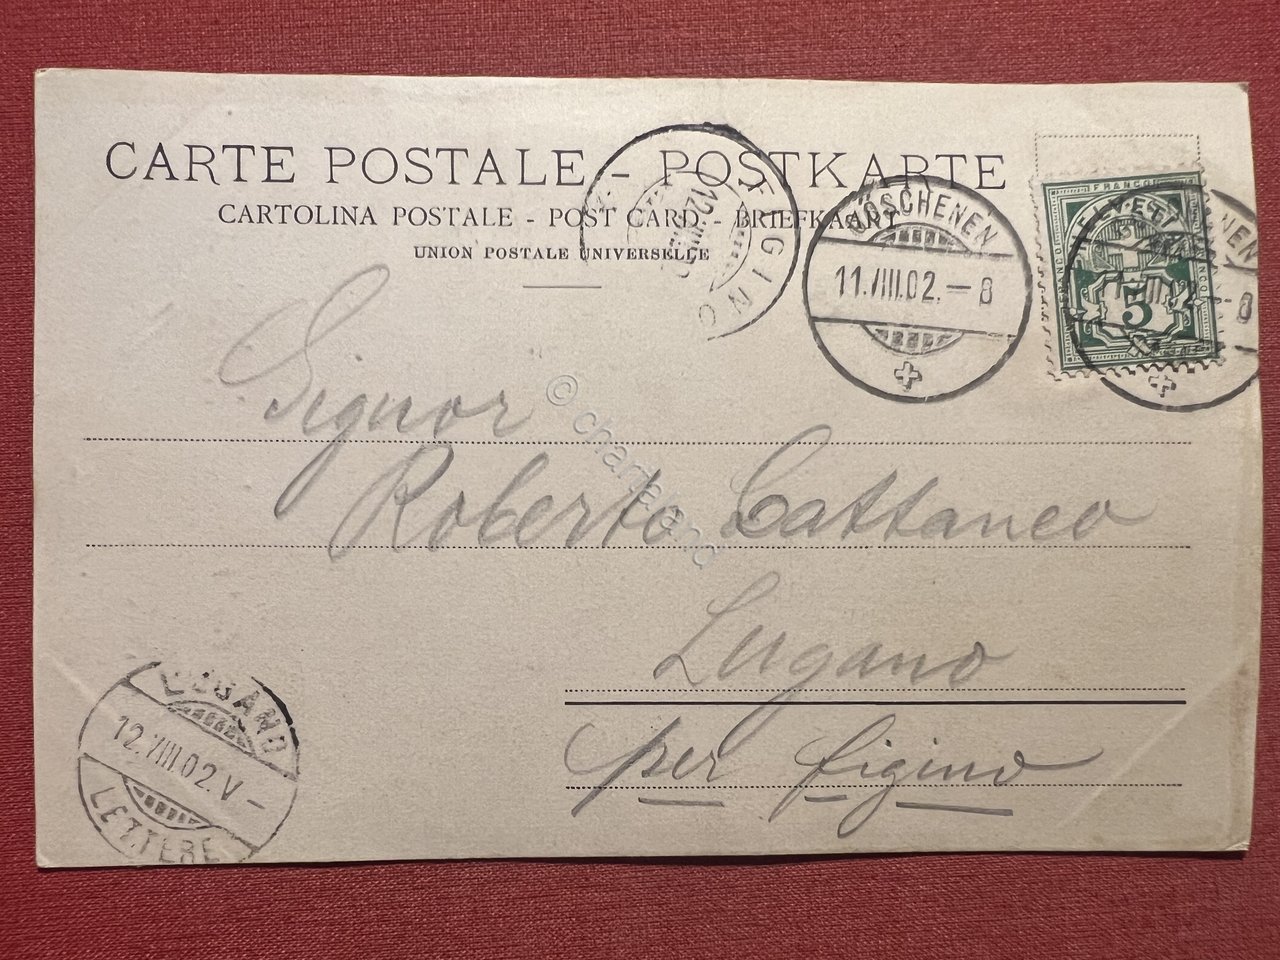 CARTE POSTALE - POSTKARTE
CARTOLINA POSTALE - POST CARD - BRIEFKAART
UNION POSTALE UNIVERSELLE
FIGINO
12.VIII.02
GÖSCHENEN
11.VIII.02.-8
FRANCO
HELVETIA
5
NEN
-8
© chartaland
Signor
Roberto Cattaneo
Lugano
per figino
LUGANO
12.VIII.02.V-
LETTERE